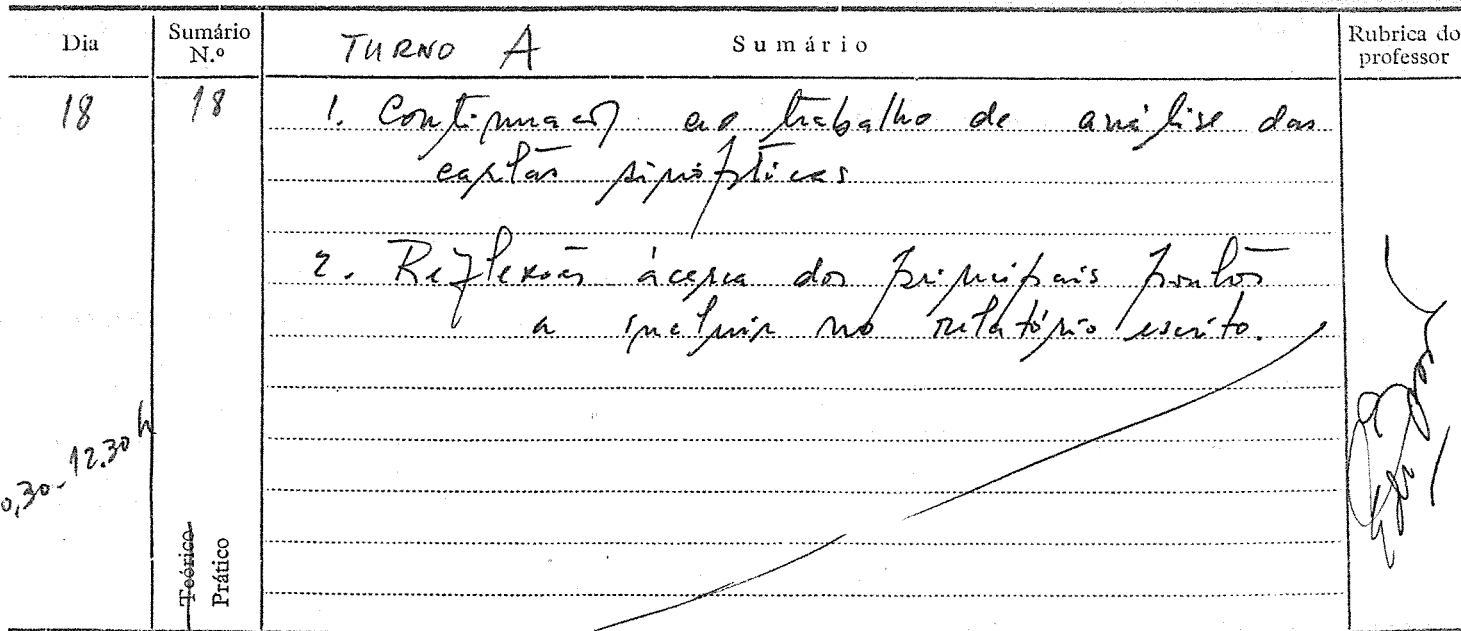 Dia
Sumário N.º
TURNO A
Sumário
Rubrica do professor
18
18
1. Continuação do trabalho de análise das
cartas sinópticas
2. Reflexões àcerca dos principais pontos
a incluir no relatório escrito.
0,30-12.30h
Teórico
Prático